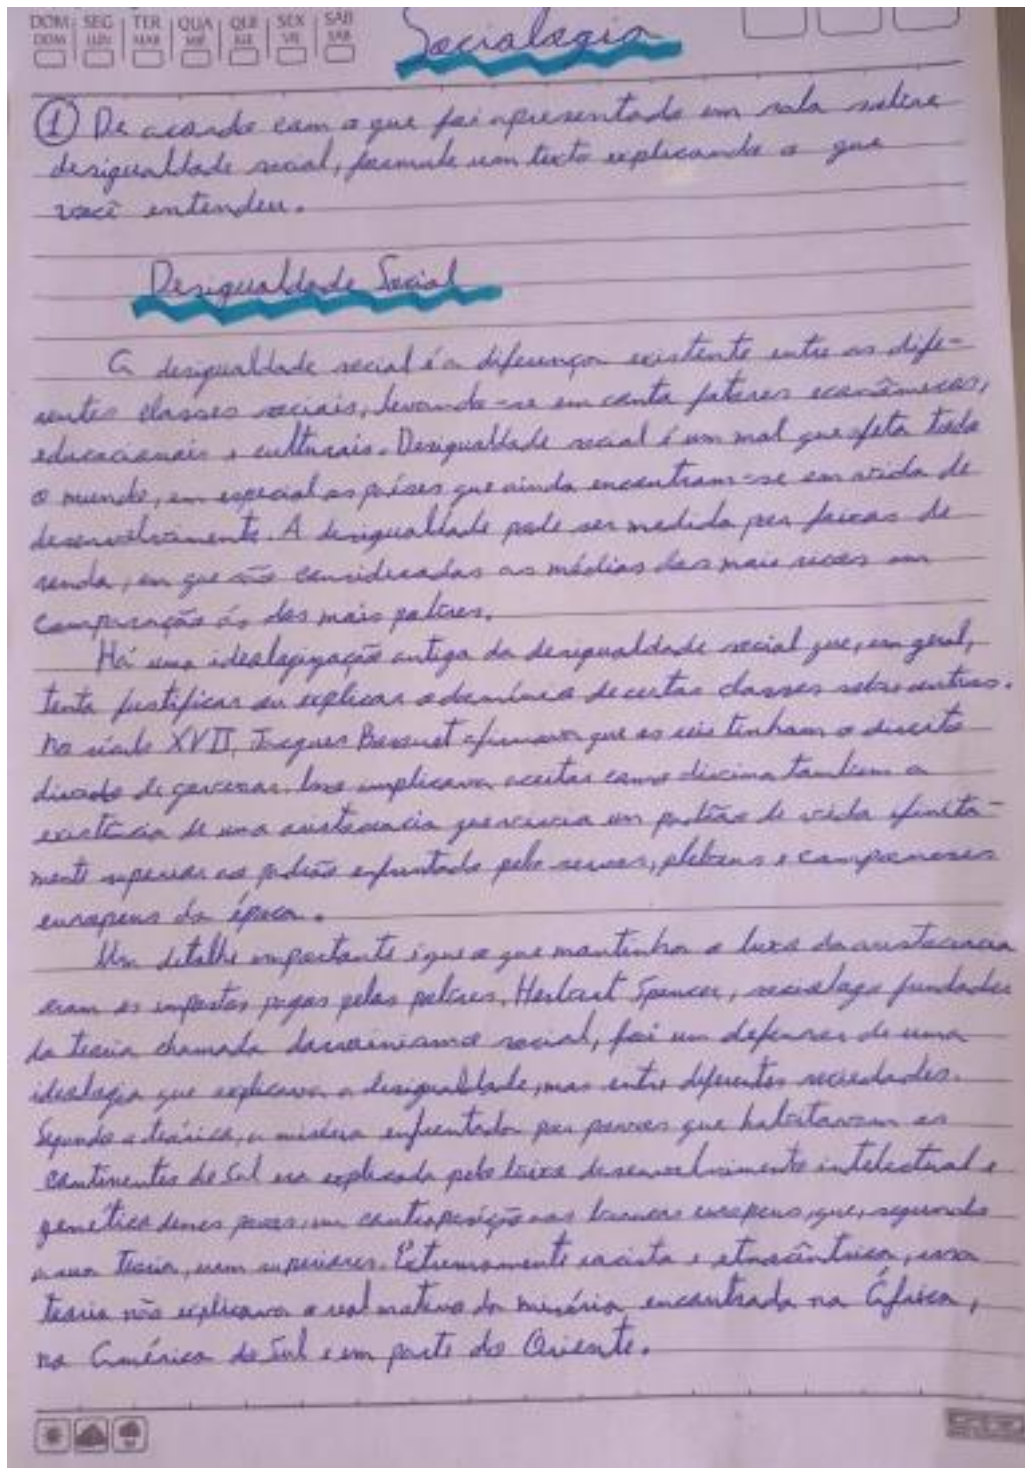 DOM SEG TER QUA QUI SEX SAB
DOM LUN MAR MIE JUE VIE SAB
Sociologia
① De acordo com o que foi apresentado em sala sobre
desigualdade social, formule um texto explicando o que
você entendeu.
Desigualdade Social
A desigualdade social é a diferença existente entre as dife-
rentes classes sociais, levando-se em conta fatores econômicos,
educacionais e culturais. Desigualdade social é um mal que afeta todo
o mundo, em especial os países que ainda encontram-se em vida de
desenvolvimento. A desigualdade pode ser medida por faixas de
renda, em que são consideradas as médias dos mais ricos em
comparação às dos mais pobres.
Há uma ideologização antiga da desigualdade social que, em geral,
tenta justificar ou explicar o domínio de certas classes sobre outras.
No século XVII, Jacques Bossuet afirmava que os reis tinham o direito
de governar. Isso implicava aceitar como divina também a
existência de uma aristocracia que vivia um padrão de vida
mente superior ao padrão enfrentado pelo servos, plebeus e camponeses
europeus da época.
Um detalhe importante é que o que mantinha o luxo da aristocracia
eram os impostos pagos pelos pobres. Herbert Spencer, sociólogo fundador
da teoria chamada darwinismo social, foi um defensor de uma
ideologia que explicava a desigualdade, mas entre diferentes sociedades.
Segundo o teórico, a miséria enfrentada por povos que habitavam os
continentes do Sul era explicada pelo baixo desenvolvimento intelectual e
genético desses povos, em contraposição aos brancos europeus, que, segundo
a sua teoria, eram superiores. Extremamente racista e etnocêntrica, essa
teoria não explicava o real motivo da miséria encontrada na África,
na América do Sul e em parte do Oriente.